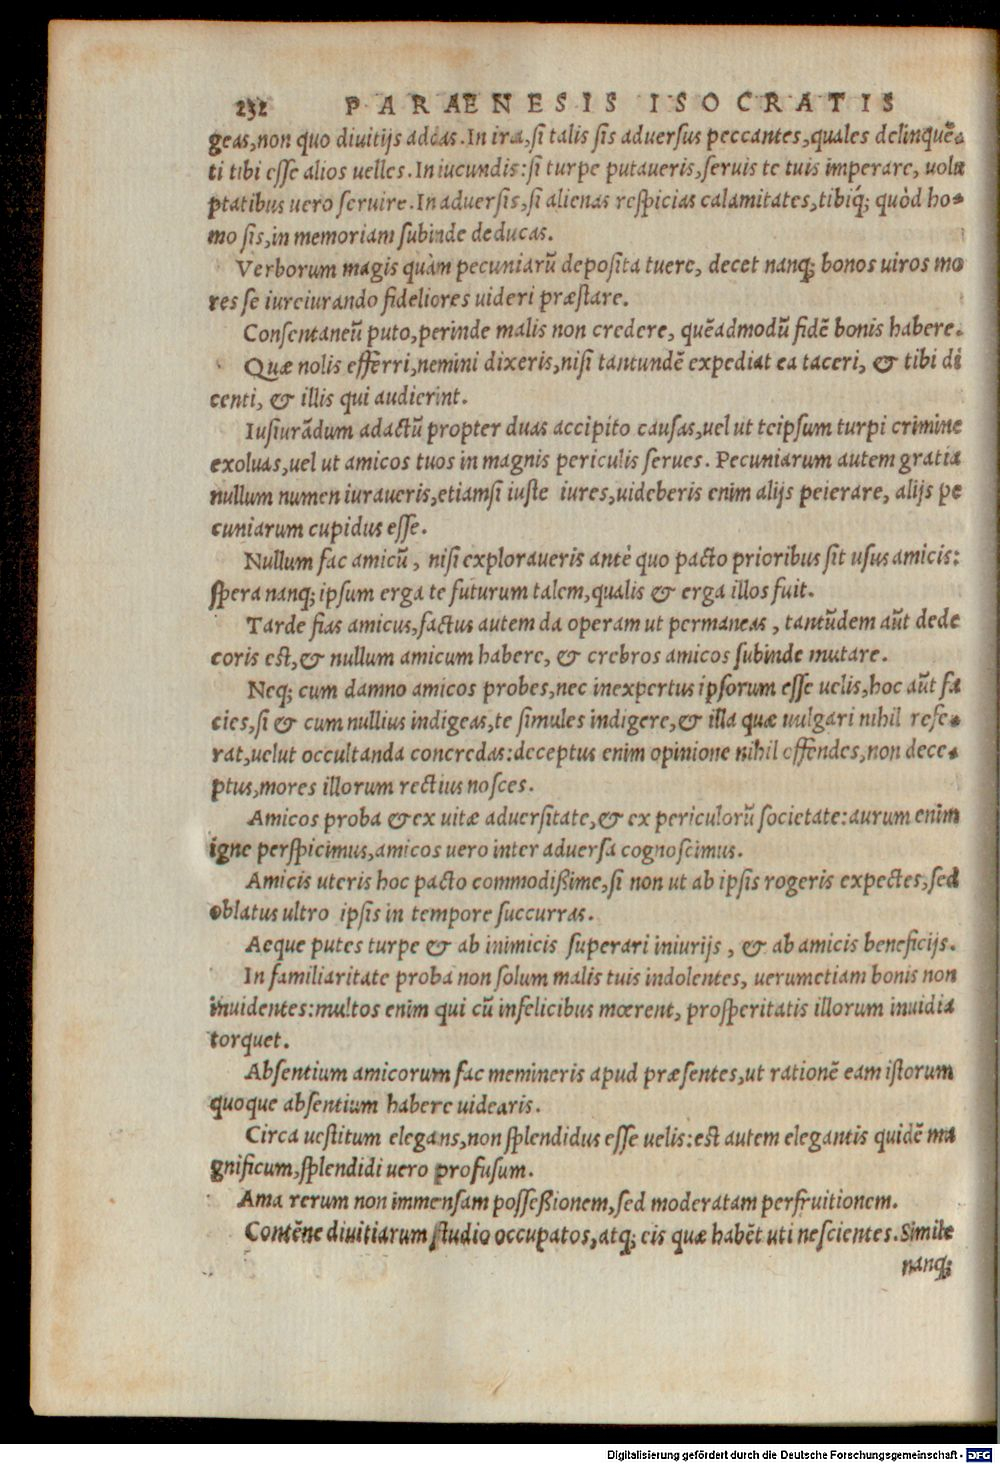 232 PARAENESIS ISOCRATIS
geas,non quo diuitijs addas. In ira,si talis sis aduersus peccantes,quales delinquē-
ti tibi esse alios uelles. In iucundis:si turpe putaueris,seruis te tuis imperare, uolu
ptatibus uero seruire. In aduersis,si alienas respicias calamitates,tibiq́; quòd ho-
mo sis,in memoriam subinde deducas.
Verborum magis quàm pecuniarũ deposita tuere, decet nanq; bonos uiros mo
res se iureiurando fideliores uideri præstare.
Consentaneũ puto,perinde malis non credere, quēadmodũ fidē bonis habere.
Quæ nolis efferri,nemini dixeris,nisi tantundē expediat ea taceri, & tibi di
centi, & illis qui audierint.
Iusiurãdum adactũ propter duas accipito causas,uel ut teipsum turpi crimine
exoluas,uel ut amicos tuos in magnis periculis serues. Pecuniarum autem gratia
nullum numen iuraueris,etiamsi iuste iures,uideberis enim alijs peierare, alijs pe
cuniarum cupidus esse.
Nullum fac amicũ, nisi exploraueris antè quo pacto prioribus sit usus amicis:
spera nanq; ipsum erga te futurum talem,qualis & erga illos fuit.
Tarde fias amicus,factus autem da operam ut permaneas, tantũdem aũt dede
coris est,& nullum amicum habere, & crebros amicos subinde mutare.
Neq; cum damno amicos probes,nec inexpertus ipsorum esse uelis,hoc aũt fa
cies,si & cum nullius indigeas,te simules indigere,& illa quæ uulgari nihil refe-
rat,uelut occultanda concredas:deceptus enim opinione nihil effendes,non dece-
ptus,mores illorum rectius nosces.
Amicos proba & ex uitæ aduersitate,& ex periculorũ societate:aurum enim
igne perspicimus,amicos uero inter aduersa cognoscimus.
Amicis uteris hoc pacto commodißime,si non ut ab ipsis rogeris expectes,sed
oblatus ultro ipsis in tempore succurras.
Aeque putes turpe & ab inimicis superari iniurijs, & ab amicis beneficijs.
In familiaritate proba non solum malis tuis indolentes, uerumetiam bonis non
inuidentes:multos enim qui cũ infelicibus mœrent, prosperitatis illorum inuidia
torquet.
Absentium amicorum fac memineris apud præsentes,ut rationē eam istorum
quoque absentium habere uidearis.
Circa uestitum elegans,non splendidus esse uelis:est autem elegantis quidē ma
gnificum,splendidi uero profusum.
Ama rerum non immensam posseßionem,sed moderatam perfruitionem.
Contēne diuitiarum studio occupatos,atq; eis quæ habēt uti nescientes. Simile
nanq;
Digitalisierung gefördert durch die Deutsche Forschungsgemeinschaft - DFG